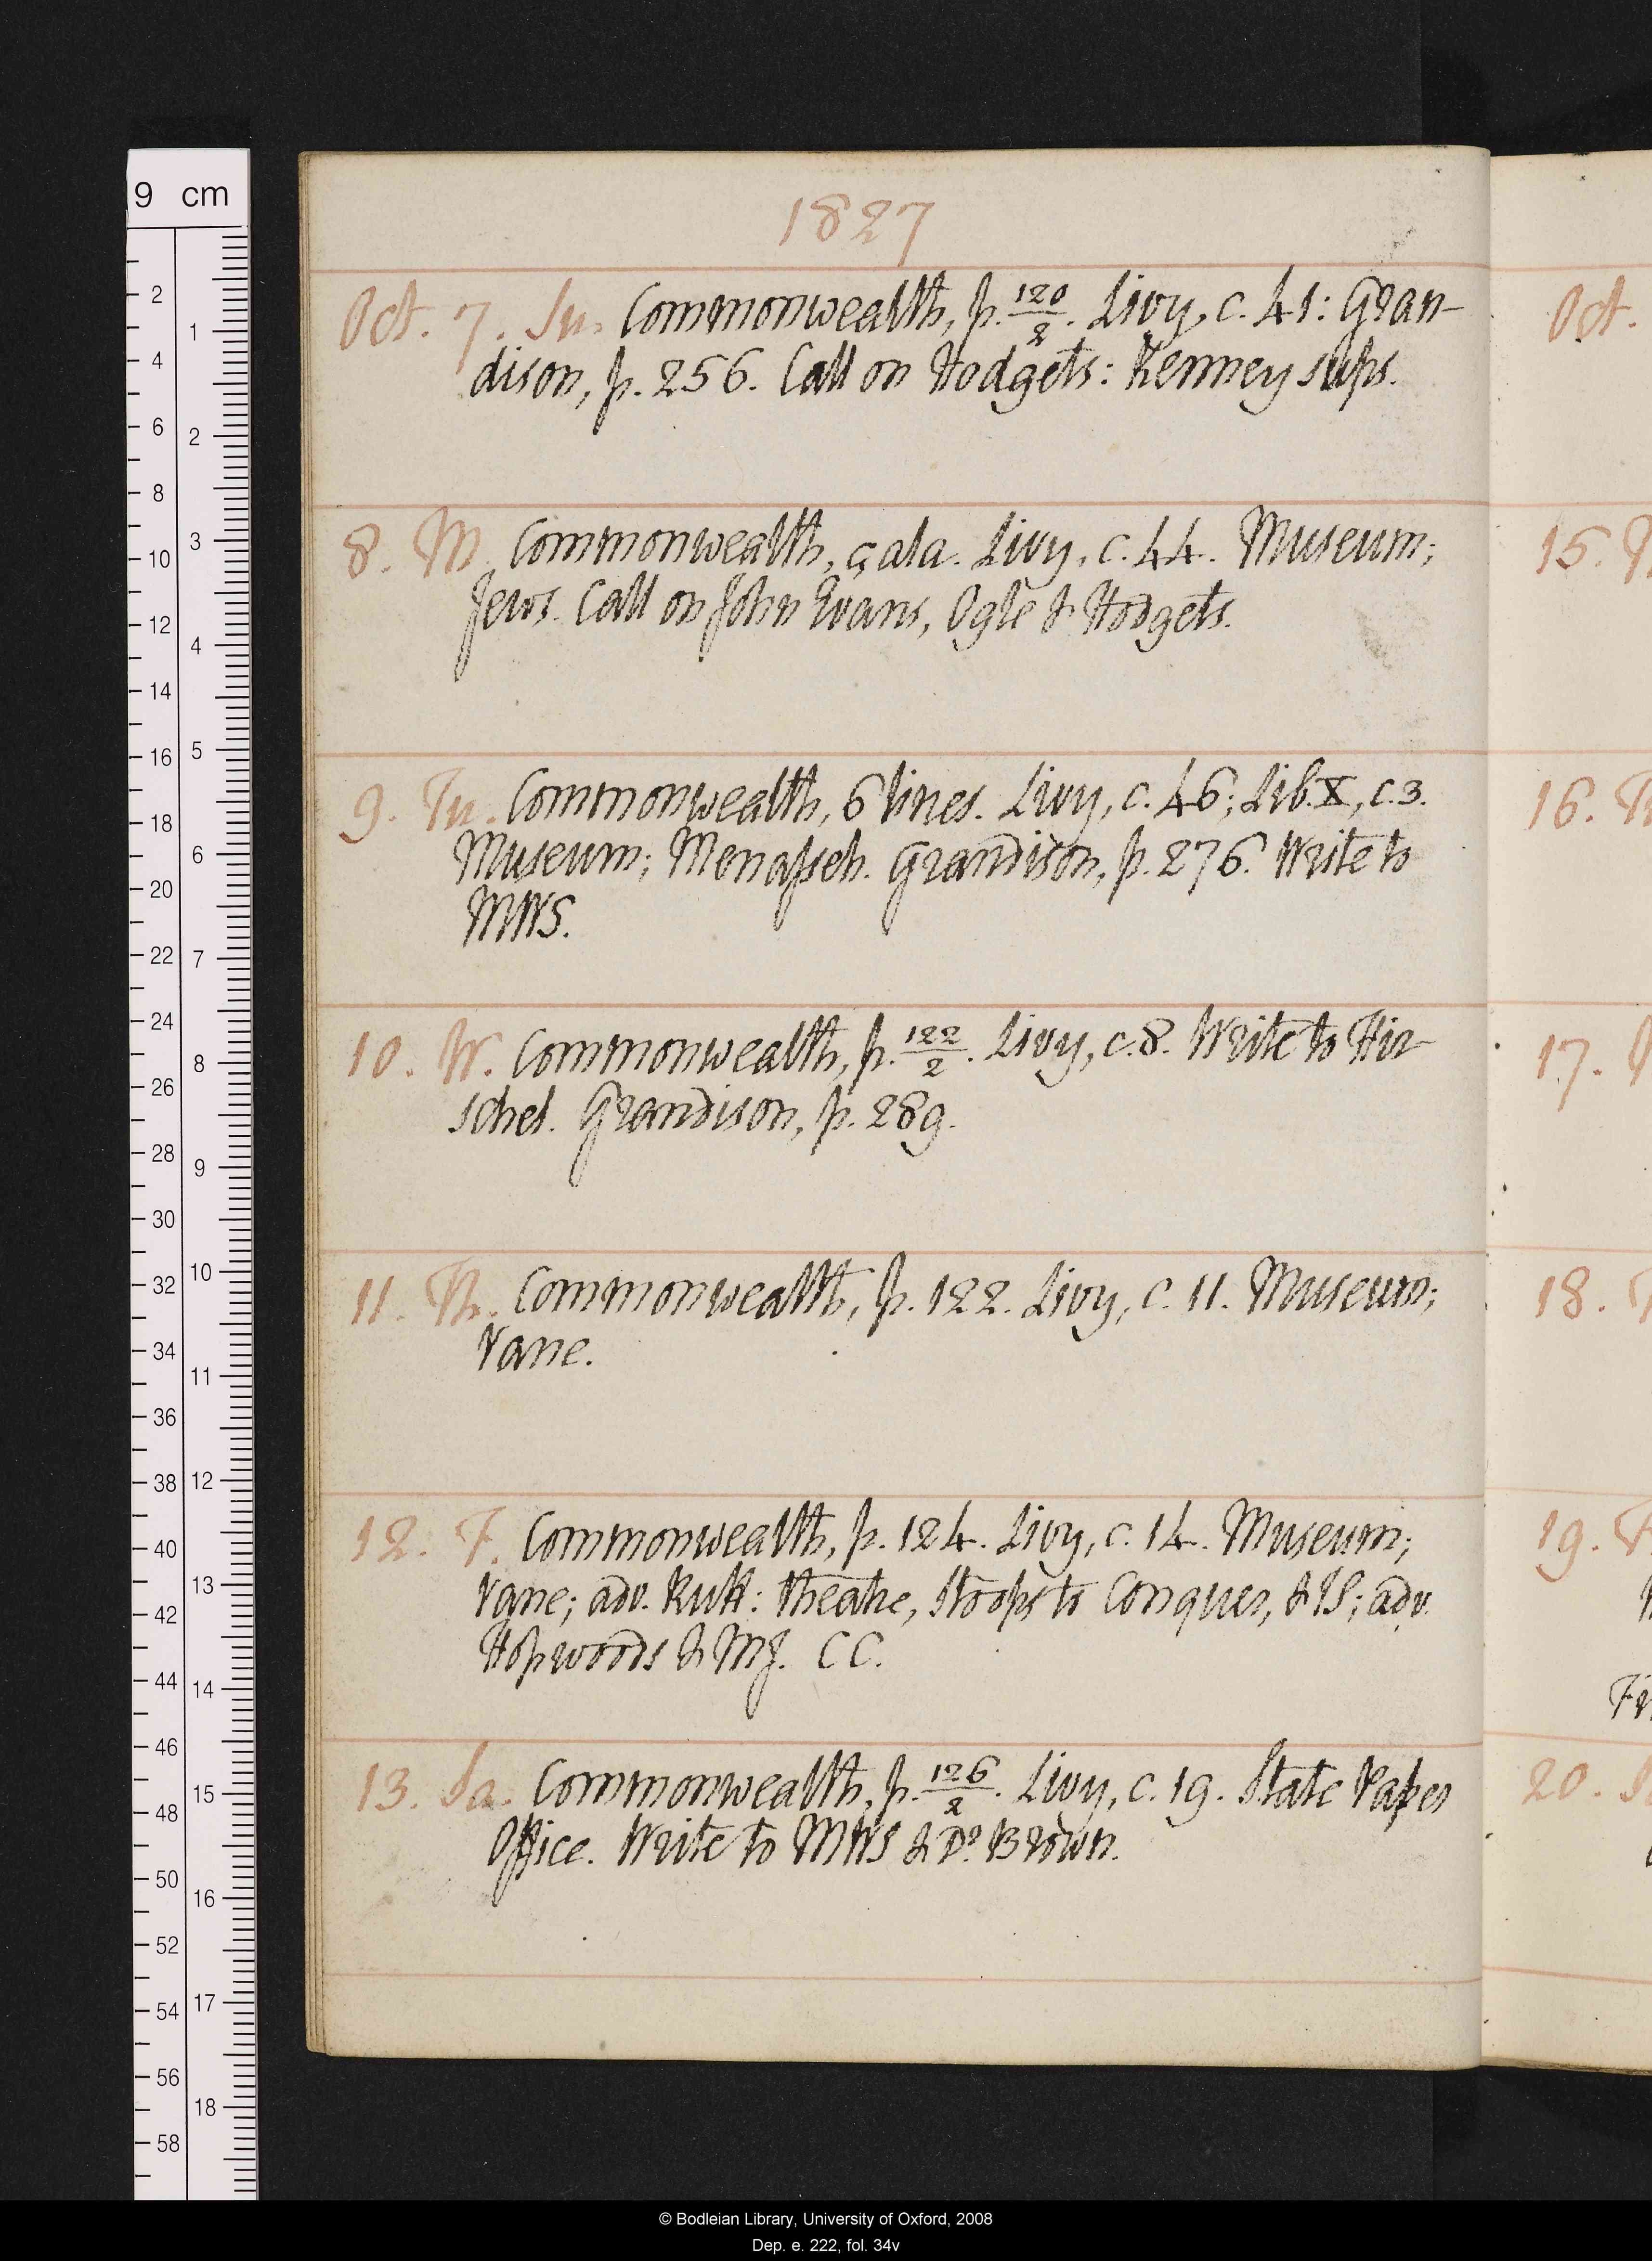 1827
Oct. 7. Su. Commonwealth, p. 120/2. Livy, c. 41: Gran-
dison, p. 256. Call on Hodgets: Kenney sups.
8. M. Commonwealth, çala. Livy, c. 44. Museum;
Jews. Call on John Evans, Ogle & Hodgets.
9. Tu. Commonwealth, 6 lines. Livy, c. 46; Lib. X, c. 3.
Museum; Menasseh. Grandison, p. 276. Write to
MWS.
10. W. Commonwealth, p. 122/2. Livy, c. 8. Write to Hir-
schel. Grandison, p. 289.
11. Th. Commonwealth, p. 122. Livy, c. 11. Museum;
Vane.
12. F. Commonwealth, p. 124. Livy, c. 14. Museum;
Vane; adv. Rutt: theatre, Stoops to Conquer, & IS; adv.
Hopwoods & MJ. CC.
13. Sa. Commonwealth, p. 126/2. Livy, c. 19. State Paper
Office. Write to MWS & Dr Brown.
Oct.
15.
16.
17.
18.
19.
20.
9 cm
2
4
6
8
10
12
14
16
18
20
22
24
26
28
30
32
34
36
38
40
42
44
46
48
50
52
54
56
58
1
2
3
4
5
6
7
8
9
10
11
12
13
14
15
16
17
18
© Bodleian Library, University of Oxford, 2008
Dep. e. 222, fol. 34v